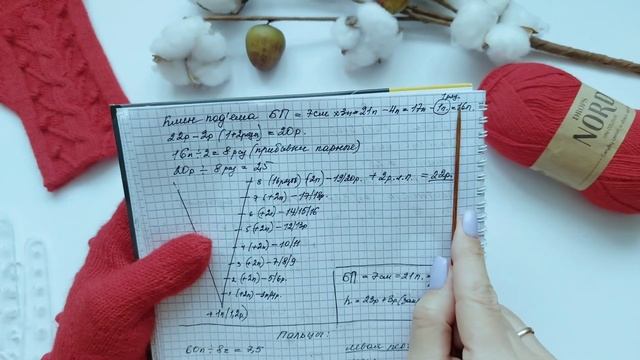 1 рез.
Клин под'ема БП = 7см х3п=21п - 4п = 17п - (1п) = 16п.
22р - 2р (1+2рядп) = 20р.
16п ÷ 2 = 8 раз (прибавки парные)
20р ÷ 8 раз = 2,5
8 (16рядов) (+2п) - 19/20р. + 2р.л.п. = 22р.
7 (+2п) - 17/18р.
6 (+2п) - 14/15/16
5 (+2п) - 12/13р
4 (+2п) - 10/11
3 (+2п) - 7/8/9
2 (+2п) - 5/6р.
1 (+2п) - 3р/4р.
+ 1п (1,2р)
БП = 7см = 21п.
h. = 22р + 8р
Пальцы:
60п ÷ 8 = 7,5
DROPS
NORD